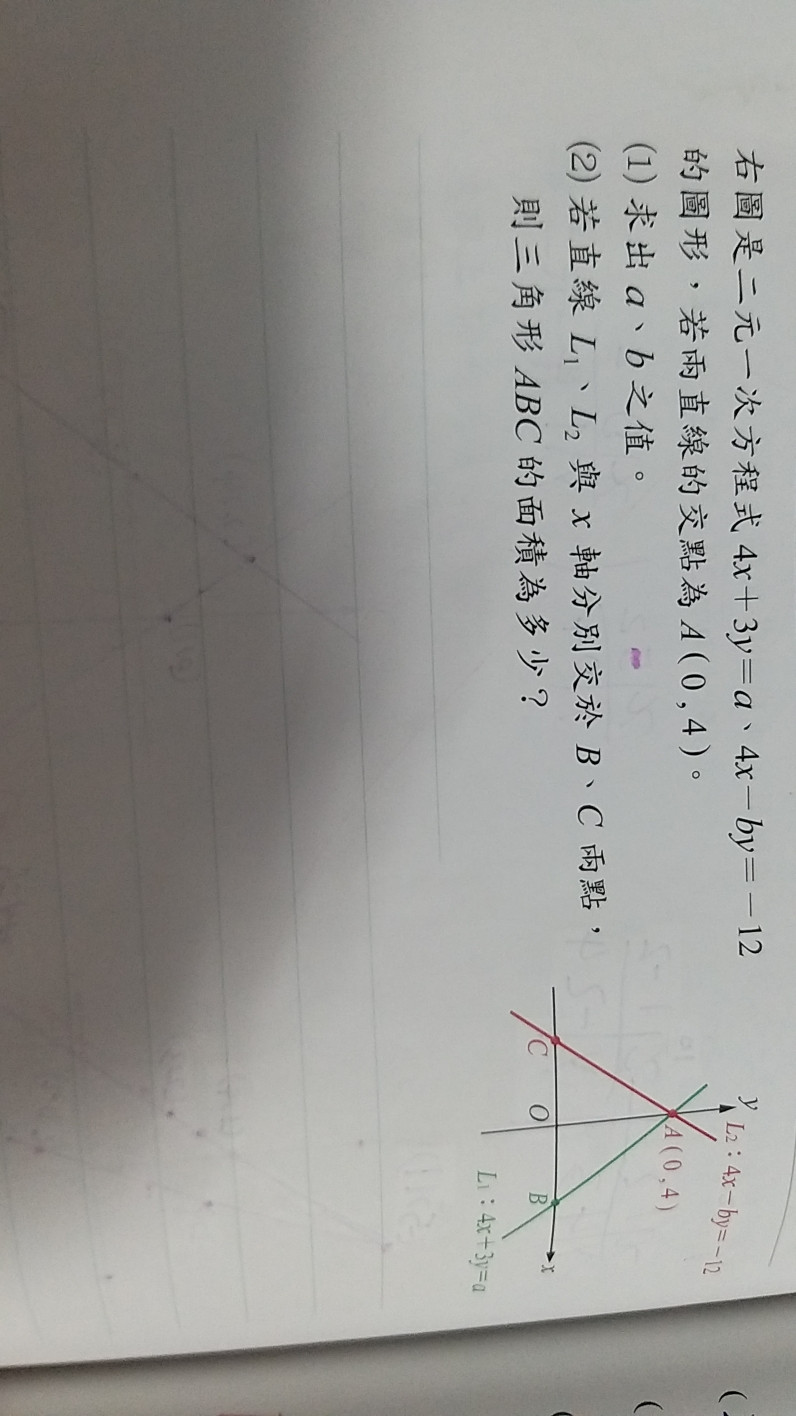 右圖是二元一次方程式 4x+3y=a、4x-by=-12
的圖形,若兩直線的交點為 A(0,4)。
(1) 求出 a、b 之值。
(2) 若直線 L₁、L₂ 與 x 軸分別交於 B、C 兩點,
則三角形 ABC 的面積為多少?
y
L₂:4x-by=-12
A(0,4)
C
O
B
x
L₁:4x+3y=a